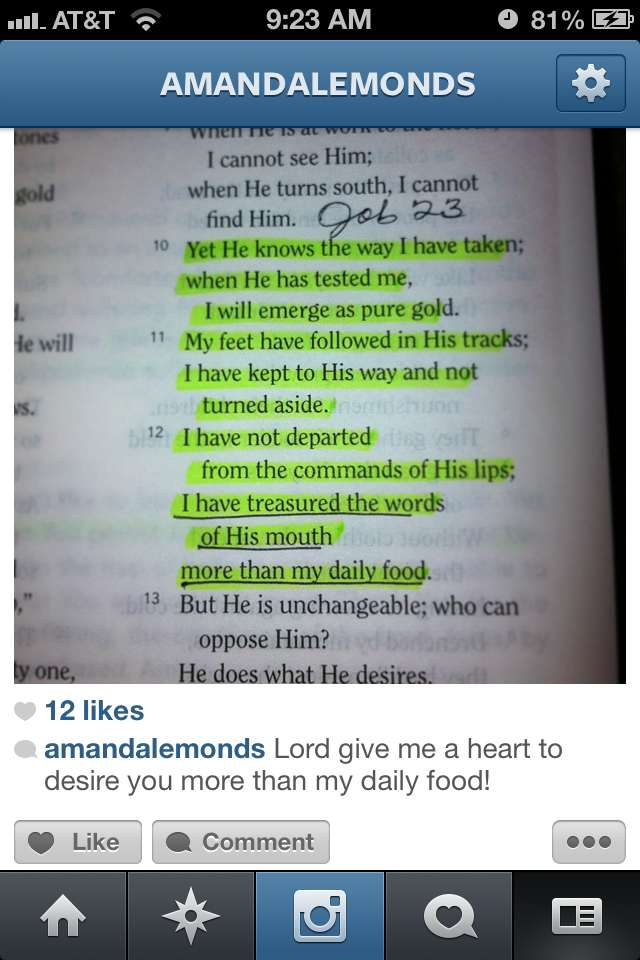 AT&T 9:23 AM 81%
AMANDALEMONDS
tones
When He is at work to the
I cannot see Him;
gold
when He turns south, I cannot
find Him. Job 23
10 Yet He knows the way I have taken;
when He has tested me,
I will emerge as pure gold.
He will
11 My feet have followed in His tracks;
I have kept to His way and not
turned aside.
12 I have not departed
from the commands of His lips;
I have treasured the words
of His mouth
more than my daily food.
13 But He is unchangeable; who can
oppose Him?
ty one,
He does what He desires.
12 likes
amandalemonds Lord give me a heart to
desire you more than my daily food!
Like Comment